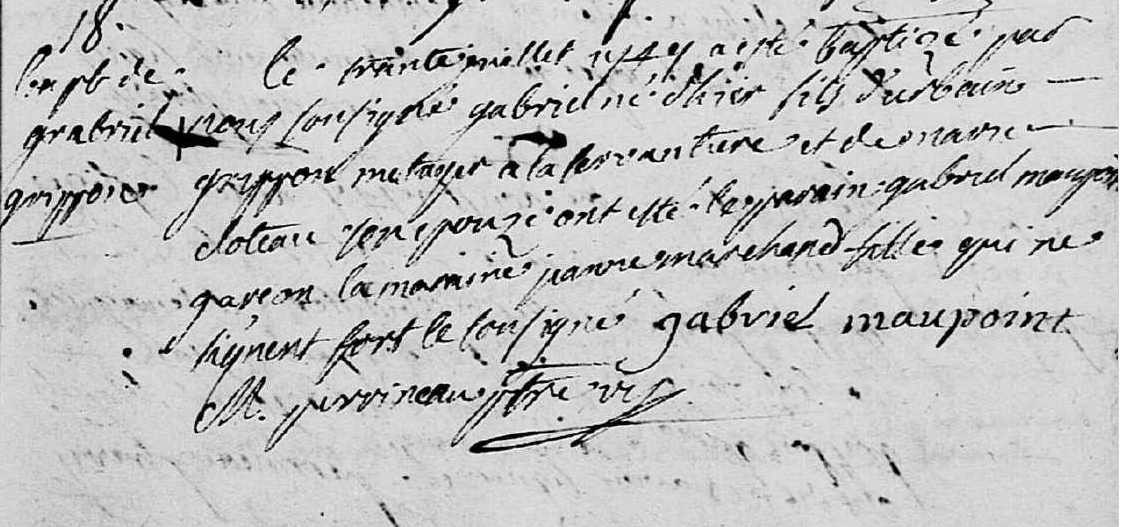 18
le bpt de
grabriel
grippon
le trante juillet 1749 a esté baptizé par
nous sousigné gabriel né d'hier fils d'urbain
grippon metayer a la servantiere et de marie
cloteau son epouze ont esté le parain gabriel maupoin
garcon la maraine janne marchand fille qui ne
signent fors le sousigné gabriel maupoint
M. perrineau ptre vic